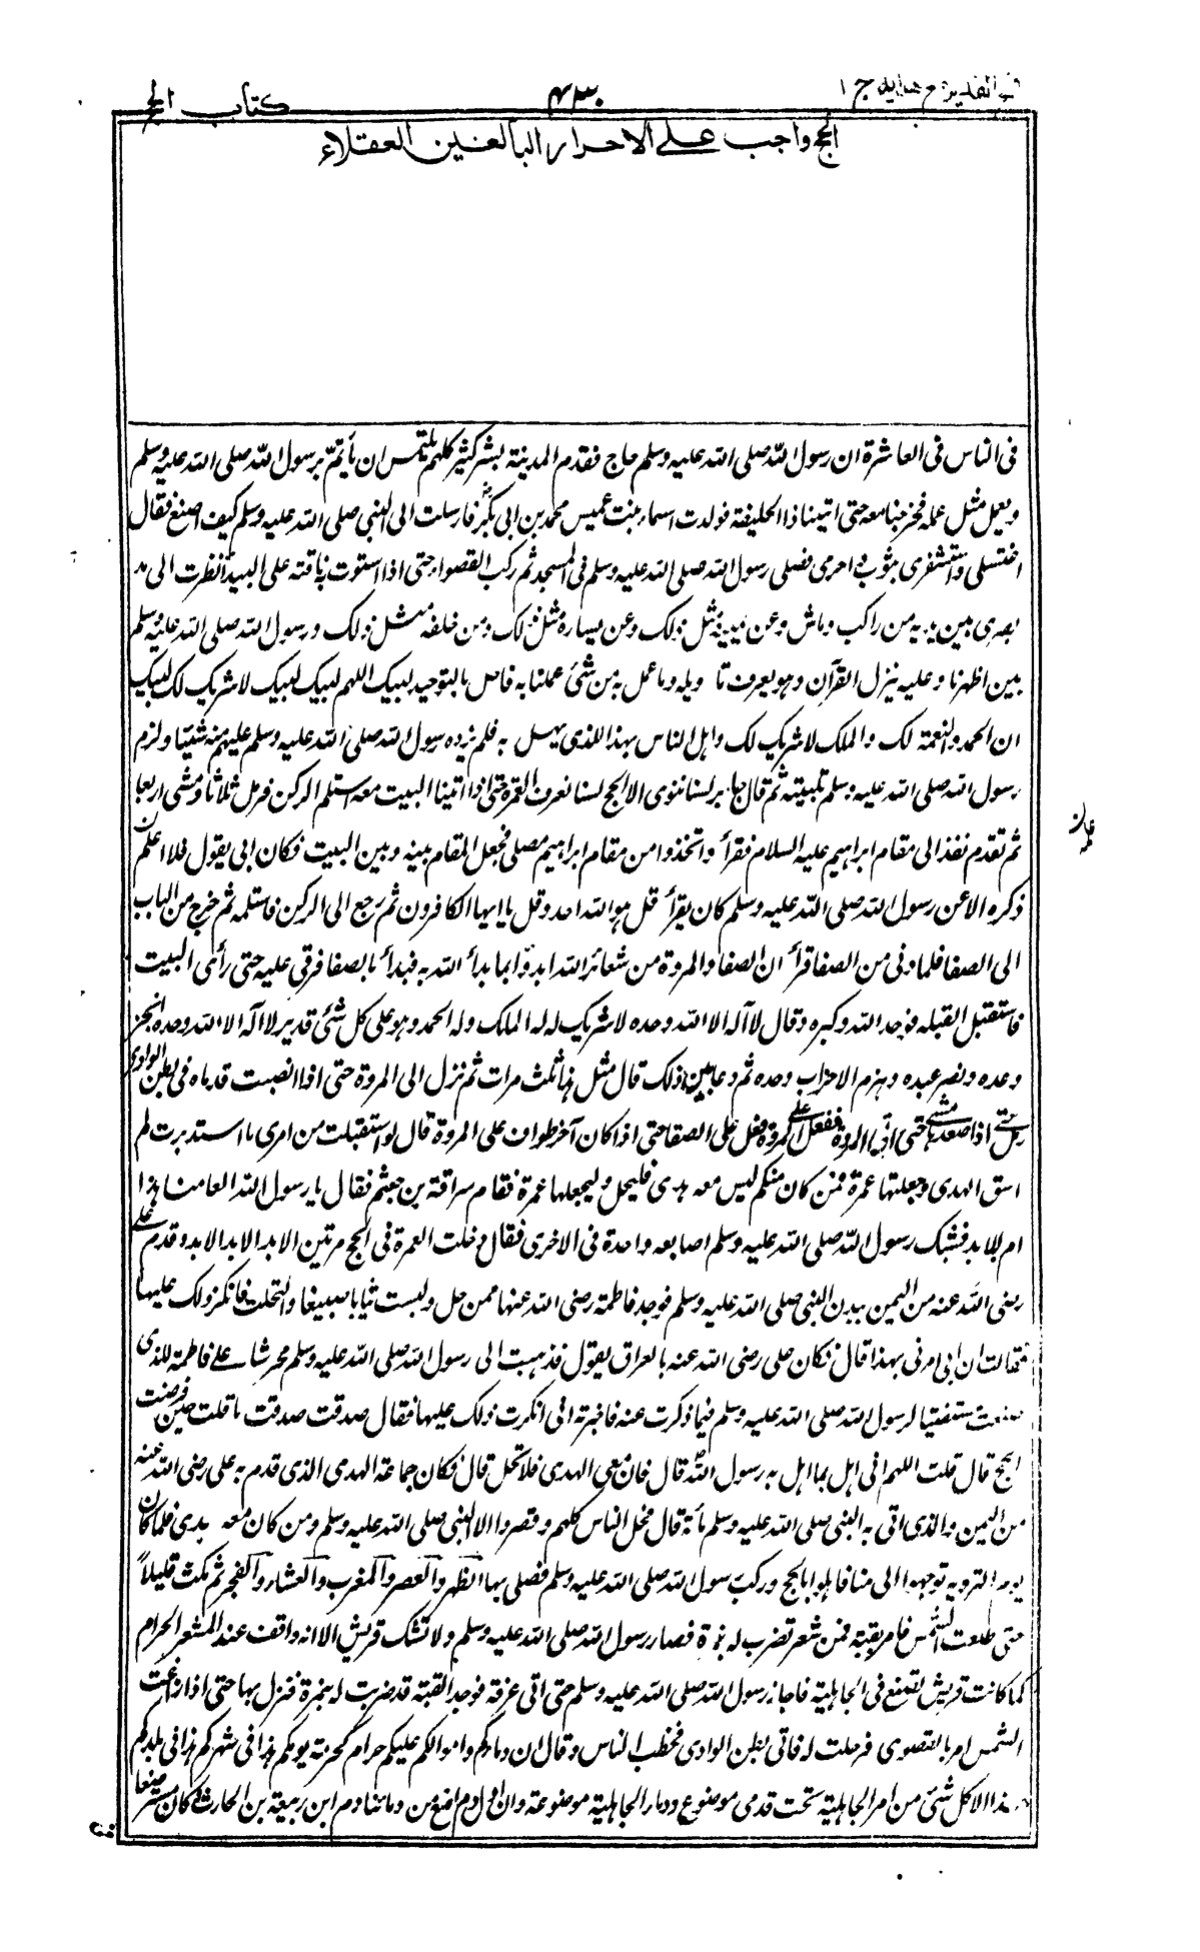 فتح القدير مع هدايه ج ١
٤٣٠
كتاب الحج
الحج واجب على الاحرار البالغين العقلاء
فى الناس فى العاشرة ان رسول الله صلى الله عليه وسلم حاج فقدم المدينة بشر كثير كلهم يلتمس ان يأتم برسول الله صلى الله عليه وسلم
ويعمل مثل عمله فخرجنا معه حتى اتينا ذا الحليفة فولدت اسماء بنت عميس محمد بن ابى بكر فارسلت الى النبى صلى الله عليه وسلم كيف اصنع فقال
اغتسلى واستثفرى بثوب واحرمى فصلى رسول الله صلى الله عليه وسلم فى المسجد ثم ركب القصواء حتى اذا استوت به ناقته على البيداء نظرت الى مد
بصرى بين يديه من راكب وماش وعن يمينه مثل ذلك وعن يساره مثل ذلك ومن خلفه مثل ذلك ورسول الله صلى الله عليه وسلم
بين اظهرنا وعليه ينزل القرآن وهو يعرف تا ويله وما عمل به من شئ عملنا به فاهل بالتوحيد لبيك اللهم لبيك لبيك لا شريك لك لبيك
ان الحمد والنعمة لك والملك لا شريك لك واهل الناس بهذا الذى يهل به فلم يزده رسول الله صلى الله عليه وسلم عليهم منه شيئا ولزم
رسول الله صلى الله عليه وسلم تلبيته ثم قال جابر لسنا ننوى الا الحج لسنا نعرف العمرة حتى اذا اتينا البيت معه استلم الركن فرمل ثلاثا ومشى اربعا
ثم تقدم نفذ الى مقام ابراهيم عليه السلام فقرأ واتخذوا من مقام ابراهيم مصلى فجعل المقام بينه وبين البيت فكان ابى يقول فلا اعلمه
ذكره الا عن رسول الله صلى الله عليه وسلم كان يقرأ قل هو الله احد وقل يا ايها الكافرون ثم رجع الى الركن فاستلمه ثم خرج من الباب
الى الصفا فلما دنى من الصفا قرأ ان الصفا والمروة من شعائر الله ابدؤا بما بدأ الله به فبدأ بالصفا فرقى عليه حتى رأى البيت
فاستقبل القبله فوحد الله وكبره وقال لا اله الا الله وحده لا شريك له له الملك وله الحمد وهو على كل شئ قدير لا اله الا الله وحده انجز
وعده ونصر عبده وهزم الاحزاب وحده ثم دعا بين ذلك قال مثل هذا ثلث مرات ثم نزل الى المروة حتى اذا انصبت قدماه فى بطن الوادى
رمل حتى اذا صعدنا مشى حتى اتى المروة ففعل على المروة كما فعل على الصفا حتى اذا كان آخر طواف على المروة قال لو استقبلت من امرى ما استدبرت لم
اسق الهدى وجعلتها عمرة فمن كان منكم ليس معه هدى فليحل وليجعلها عمرة فقام سراقة بن جعشم فقال يا رسول الله العامنا هذا
ام للابد فشبك رسول الله صلى الله عليه وسلم اصابعه واحدة فى الاخرى فقال دخلت العمرة فى الحج مرتين لا بل لابد الابد وقدم على
رضى الله عنه من اليمن ببدن النبى صلى الله عليه وسلم فوجد فاطمة رضى الله عنها ممن حل ولبست ثيابا صبيغا واكتحلت فانكر ذلك عليها
فقالت ان ابى امرنى بهذا قال فكان على رضى الله عنه بالعراق يقول فذهبت الى رسول الله صلى الله عليه وسلم محرشا على فاطمة للذى
صنعت مستفتيا لرسول الله صلى الله عليه وسلم فيما ذكرت عنه فاخبرته انى انكرت ذلك عليها فقال صدقت صدقت ما قلت حين فرضت
الحج قال قلت اللهم انى اهل بما اهل به رسول الله قال فان معى الهدى فلا تحل قال فكان جماعة الهدى الذى قدم به على رضى الله عنه
من اليمن والذى اتى به النبى صلى الله عليه وسلم مأة قال فحل الناس كلهم وقصروا الا النبى صلى الله عليه وسلم ومن كان معه هدى فلما كان
يوم التروية توجهوا الى منا فاهلوا بالحج وركب رسول الله صلى الله عليه وسلم فصلى بها الظهر والعصر والمغرب والعشاء والفجر ثم مكث قليلاً
حتى طلعت الشمس فامر بقبة فمن شعر تضرب له بنمرة فصار رسول الله صلى الله عليه وسلم ولا تشك قريش الا انه واقف عند المشعر الحرام
كما كانت قريش تصنع فى الجاهلية فاجاز رسول الله صلى الله عليه وسلم حتى اتى عرفة فوجد القبة قد ضربت له بنمرة فنزل بها حتى اذا زاغت
الشمس امر بالقصوى فرحلت له فاتى بطن الوادى فخطب الناس وقال ان دماءكم واموالكم عليكم حرام كحرمة يومكم هذا فى شهركم هذا فى بلدكم
هذا الا كل شئ من امر الجاهلية تحت قدمى موضوع ودماء الجاهلية موضوعة وان اول دم اضع من دمائنا دم ابن ربيعة بن الحارث كان مسترضعا